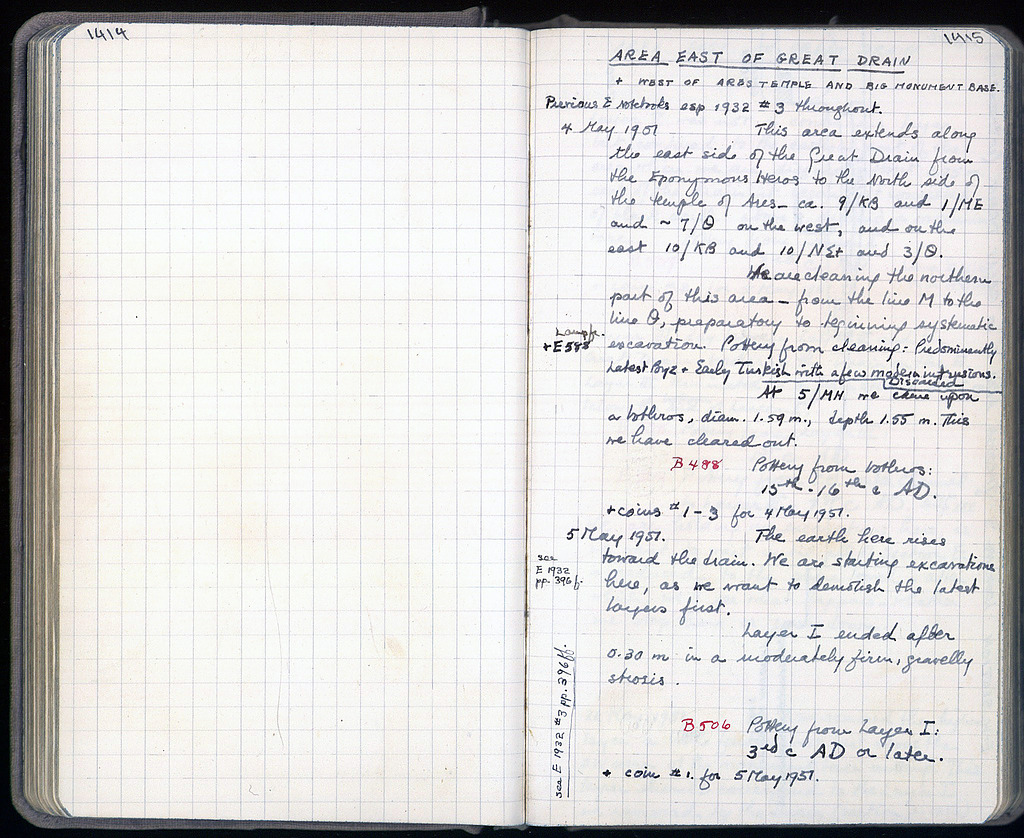 1414
1415
AREA EAST OF GREAT DRAIN
+ WEST OF ARES TEMPLE AND BIG MONUMENT BASE.
Previous E notebooks esp 1932 #3 throughout.
4 May 1951 This area extends along
the east side of the Great Drain from
the Eponymous Heros to the North side of
the temple of Ares — ca. 9/KB and 1/ME
and ~ 7/Θ on the west, and on the
east 10/KB and 10/NΣ+ and 3/Θ.
We are cleaning the northern
part of this area — from the line M to the
line Θ, preparatory to beginning systematic
Lamp fr.
+ E 588
excavation. Pottery from cleaning: Predominently
Latest Byz + Early Turkish with a few modern intrusions.
Discarded
At 5/MH we came upon
a bothros, diam. 1.59 m., depth 1.55 m. This
we have cleared out.
B 488 Pottery from bothros:
15th - 16th c AD.
+ coins #1-3 for 4 May 1951.
5 May 1951. The earth here rises
see
E 1932
pp. 396 f.
toward the drain. We are starting excavations
here, as we want to demolish the latest
layers first.
Layer I ended after
0.30 m in a moderately firm, gravelly
strosis.
see E 1932 #3 pp. 396 ff.
B 506 Pottery from Layer I:
3rd c AD or later.
+ coin #1. for 5 May 1951.